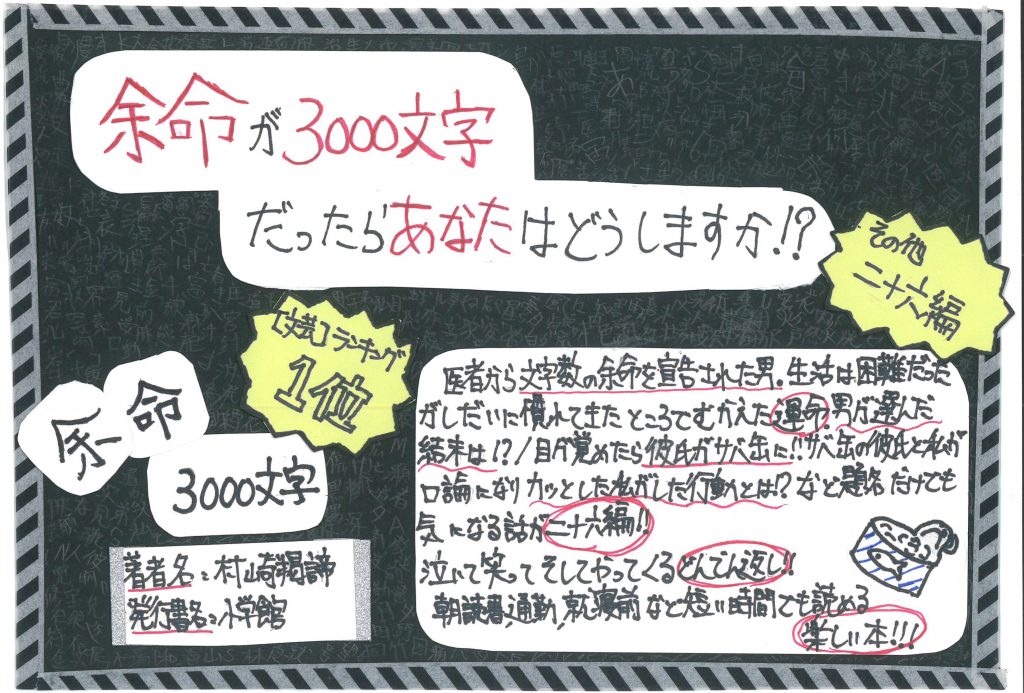 余命が3000文字
だったらあなたはどうしますか!?
その他
二十六編
【文芸】ランキング
1位
余命
3000文字
医者から文字数の余命を宣告された男。生活は困難だった
がしだいに慣れてきたところでむかえた運命。男が選んだ
結末は!?/目が覚めたら彼氏がサバ缶に!!サバ缶の彼氏と私が
口論になりカッとした私がした行動とは!?など題名だけでも
気になる話が二十六編!!
泣いて笑ってそしてやってくるどんでん返し!!
朝読書、通勤、就寝前など短い時間でも読める
楽しい本!!!
著者名:村崎羯諦
発行書名:小学館